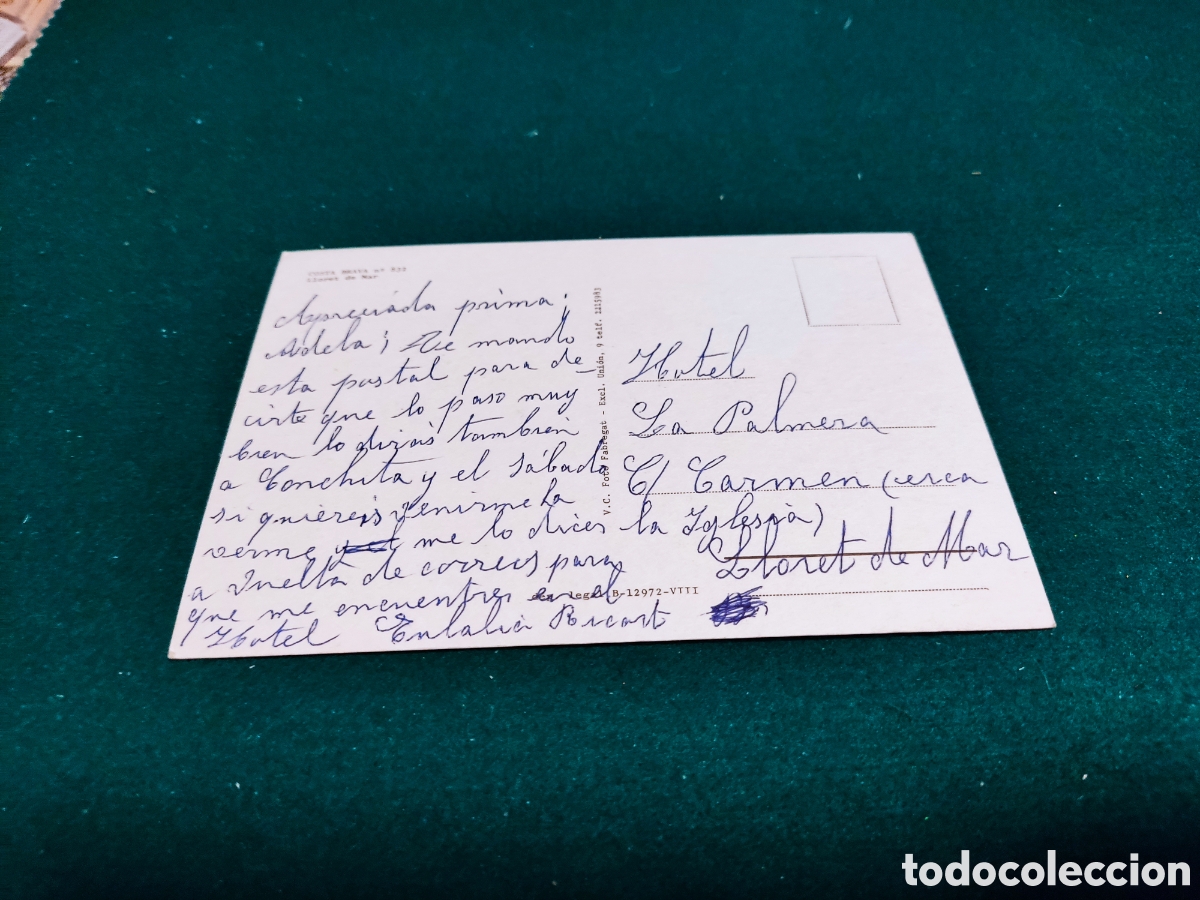 COSTA BRAVA nº 832
Lloret de Mar
Apreciada prima;
Adela; Te mando
esta postal para de_
cirte que lo paso muy
bien lo dirás también
a Conchita y el sábado
si quiereis venirme ha
verme me lo dices
a vuelta de correos para
que me encuentres en el
Hotel Eulalia Ricart
V.C. Foto Fabregat - Excl. Unión, 9 telf. 1215983
legal B-12972-VIII
Hotel
La Palmera
C/ Carmen (cerca
la Iglesia)
Lloret de Mar
todocoleccion